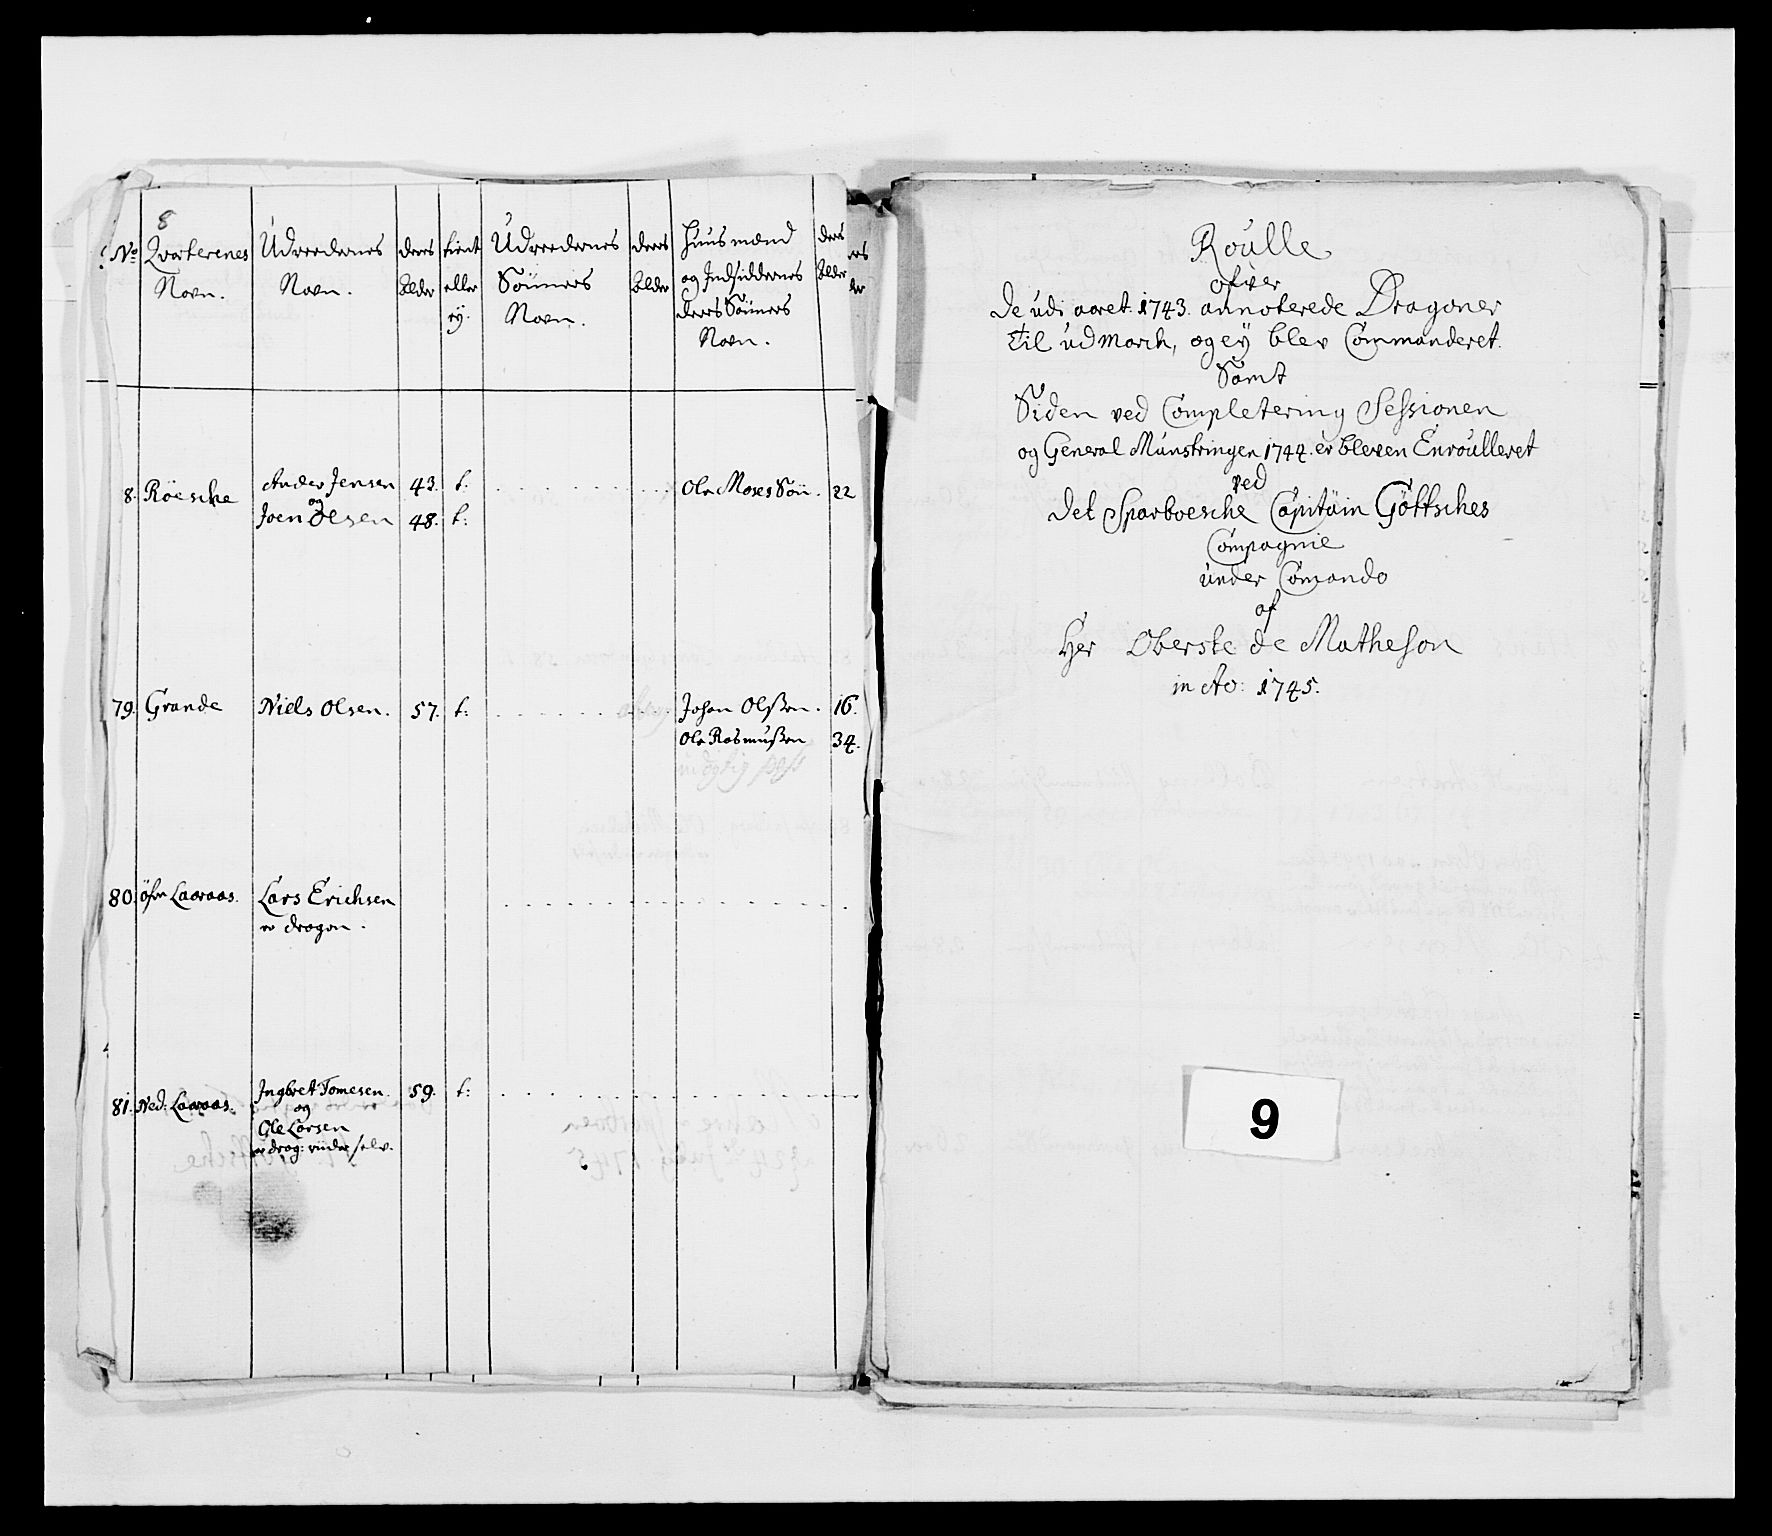 8
No Qvarterenes Navn. Udreedernes Navn. deres Alder tient eller ey. Udreedernes Sönners Navn. deres Alder Huusmænd og Indsiddernes deres Sönners Navn. deres Alder
8. Röesche Ander Jensen 43. t: Ole Moses Sön. 22
og
Joen Olsen 48. t:
79. Grande Niels Olsen. 57. t: Johan Olssen. 16.
Ole Rasmussen 34.
80. öfre Laaraas. Lars Erichsen
er dragon.
81. Ned: Laaraas. Ingbret Tomesen 59. t:
og
Ole Larsen
er drag: riider selv.
Roulle
ofver
de udi aaret 1743. annoterede Dragoner
til udmarch, og ey blev Commanderet.
Samt
Siden ved Completering Sessionen
og General Munstringen 1744. er bleven Enroulleret
ved
det Sparboesche Capitäin Göttsches
Compagnie
under Comando
af
Her Oberste de Matheson
in Ao: 1745.
9